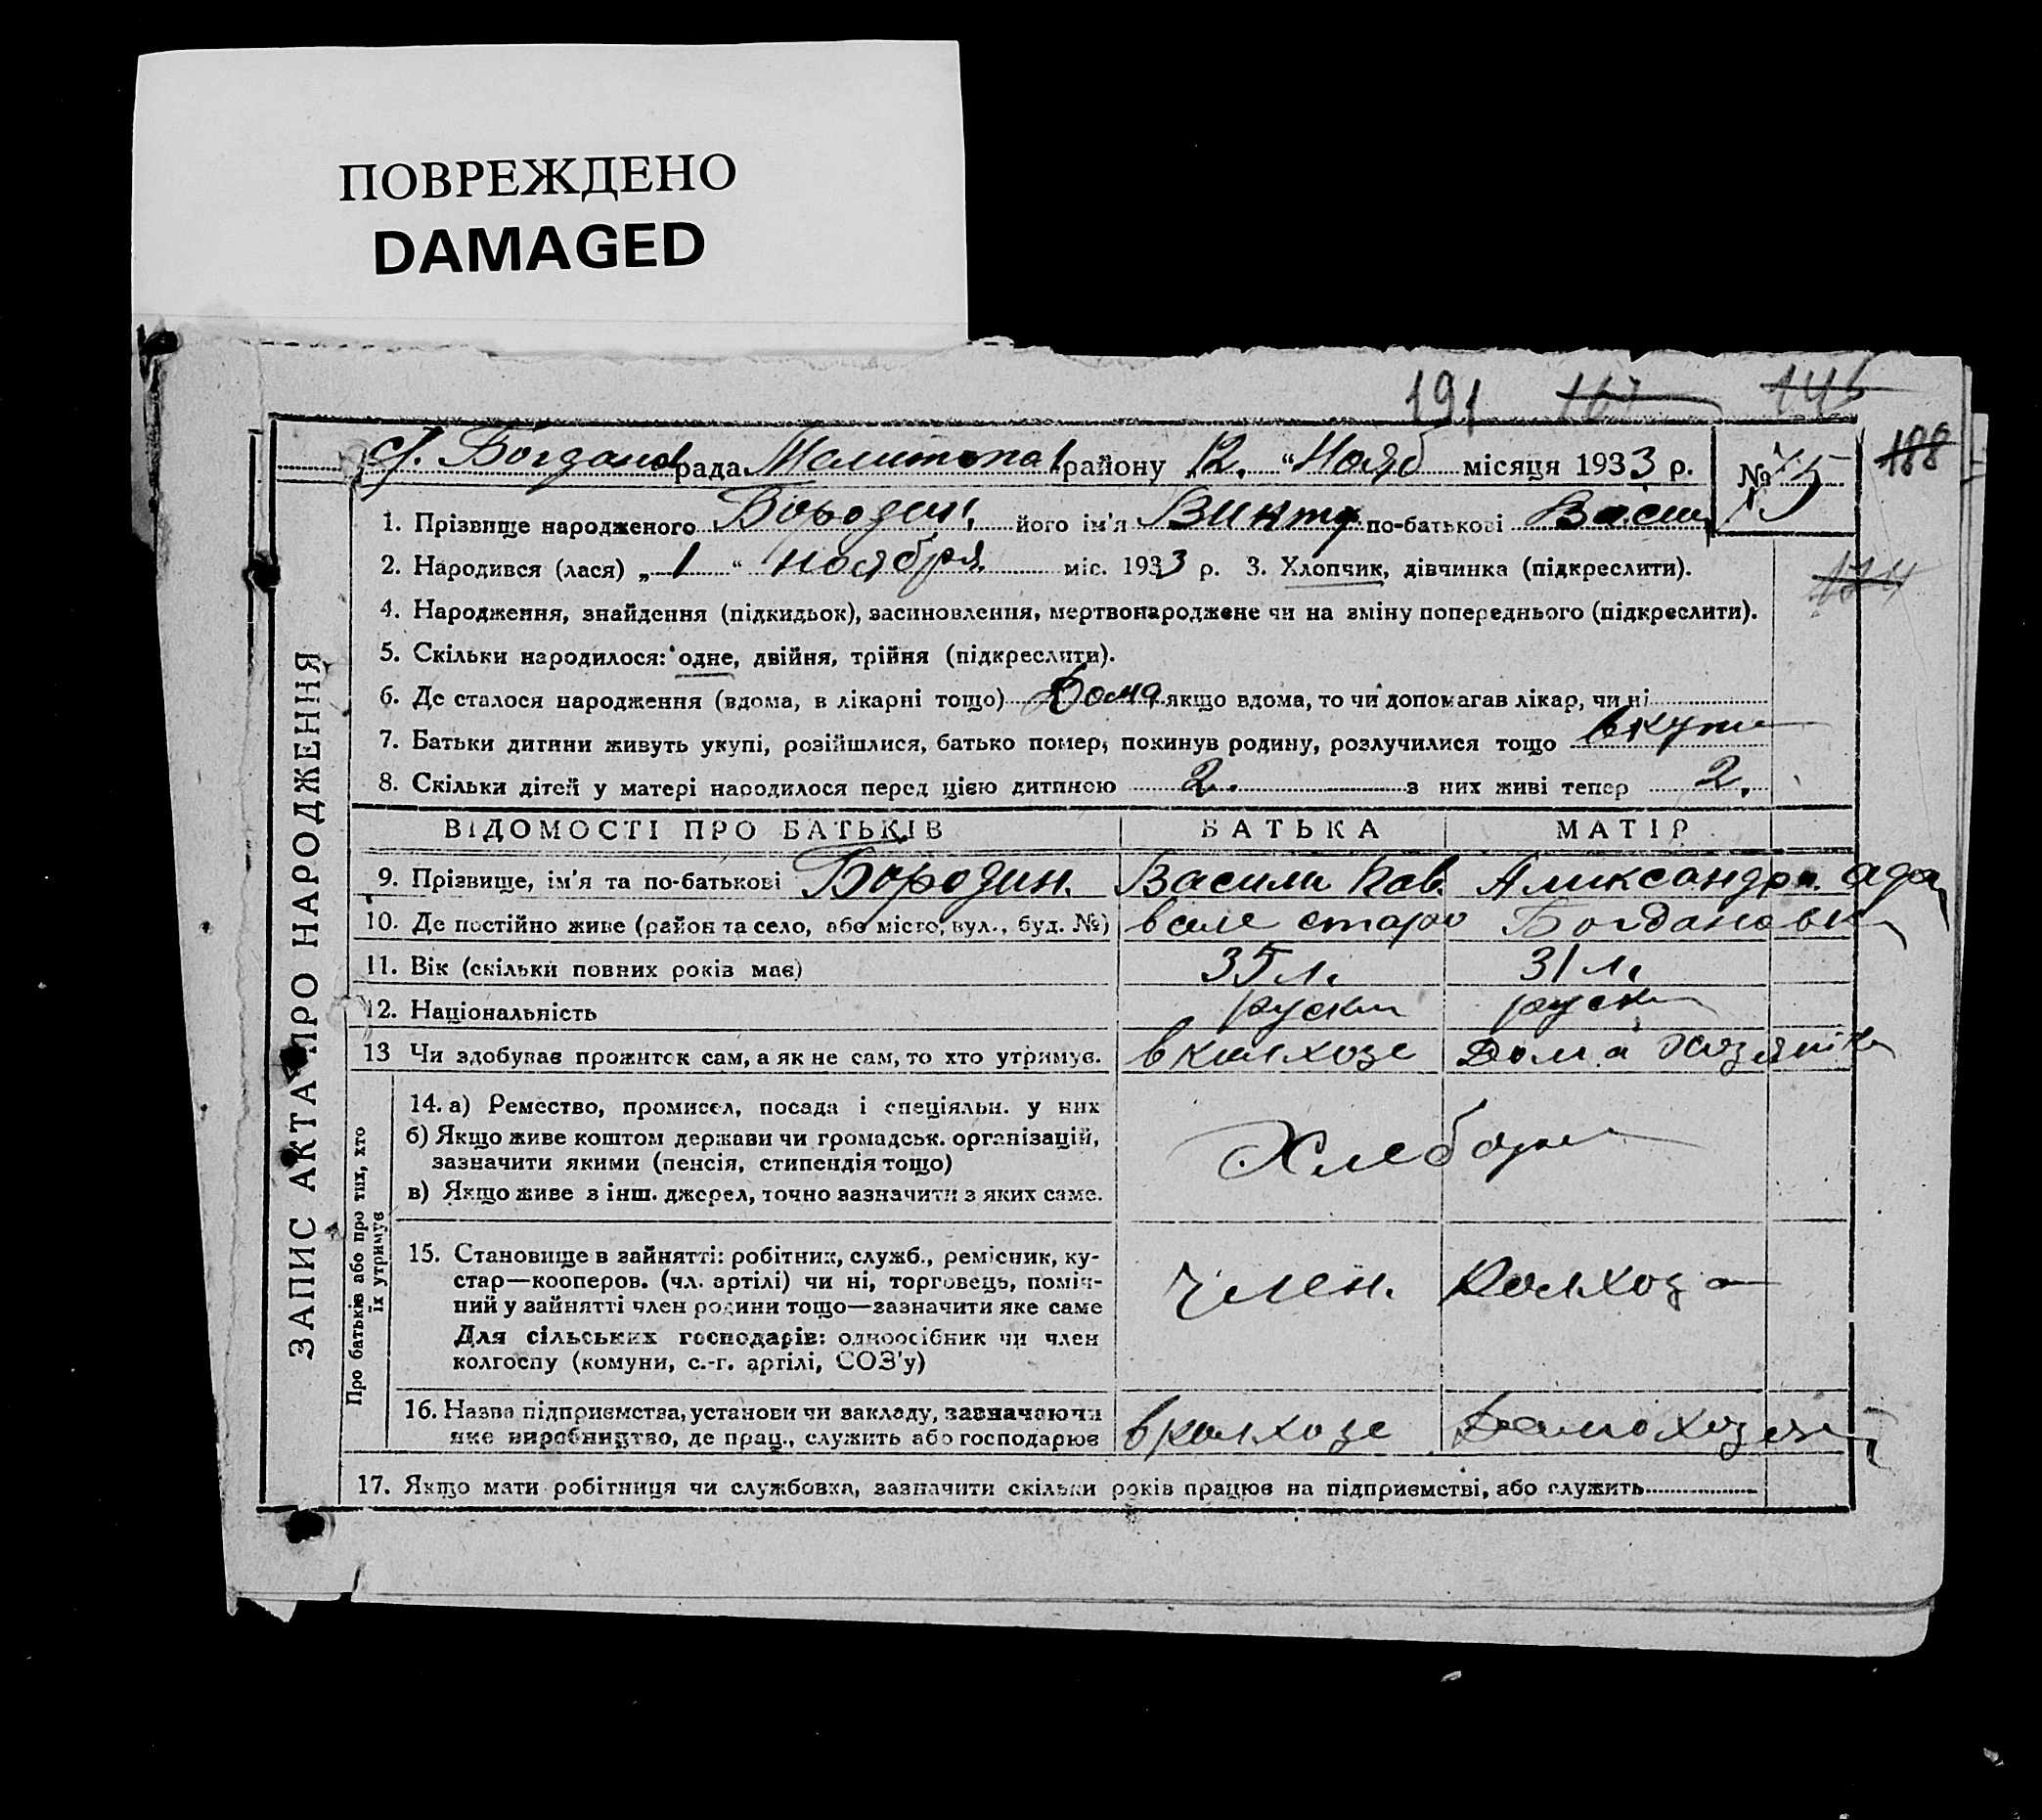 ПОВРЕЖДЕНО
DAMAGED
191 167
с/. Богданов рада Мелитопол району 12. " Нояб місяця 1933 р. № 75 188
1. Прізвище народженого Бородин його ім'я Викто по-батькові Васил
2. Народився (лася) „ 1 " ноября міс. 1933 р. 3. Хлопчик, дівчинка (підкреслити).
4. Народження, знайдення (підкидьок), засиновлення, мертвонароджене чи на зміну попереднього (підкреслити).
5. Скільки народилося: одне, двійня, трійня (підкреслити).
6. Де сталося народження (вдома, в лікарні тощо) Дома якщо вдома, то чи допомагав лікар, чи ні
7. Батьки дитини живуть укупі, розійшлися, батько помер, покинув родину, розлучилися тощо
8. Скільки дітей у матері народилося перед цією дитиною 2. з них живі тепер 2.
ВІДОМОСТІ ПРО БАТЬКІВ БАТЬКА МАТІР
9. Прізвище, ім'я та по-батькові Бородин. Васили Пав. Аликсандра Ада
10. Де постійно живе (район та село, або місто, вул., буд. №) в селе старо Богдановк
11. Вік (скільки повних років має) 35 л. 31 л.
12. Національність руски руск
13 Чи здобуває прожиток сам, а як не сам, то хто утримує. в колхозе Дома
14. а) Ремество, промисел, посада і спеціяльн. у них
б) Якщо живе коштом держави чи громадськ. організацій,
зазначити якими (пенсія, стипендія тощо)
в) Якщо живе з інш. джерел, точно зазначити з яких саме.
15. Становище в зайнятті: робітник, служб., ремісник, ку-
стар—кооперов. (чл. артілі) чи ні, торговець, поміч-
ний у зайнятті член родини тощо—зазначити яке саме
Для сільських господарів: одноосібник чи член
колгоспу (комуни, с.-г. артілі, СОЗ'у)
член. колхоза
16. Назва підприємства, установи чи закладу, зазначаючи
яке виробництво, де прац., служить або господарює
в колхозе
17. Якщо мати робітниця чи службовка, зазначити скільки років працює на підприємстві, або служить
ЗАПИС АКТА ПРО НАРОДЖЕННЯ
Про батьків або про тих, хто
їх утримує